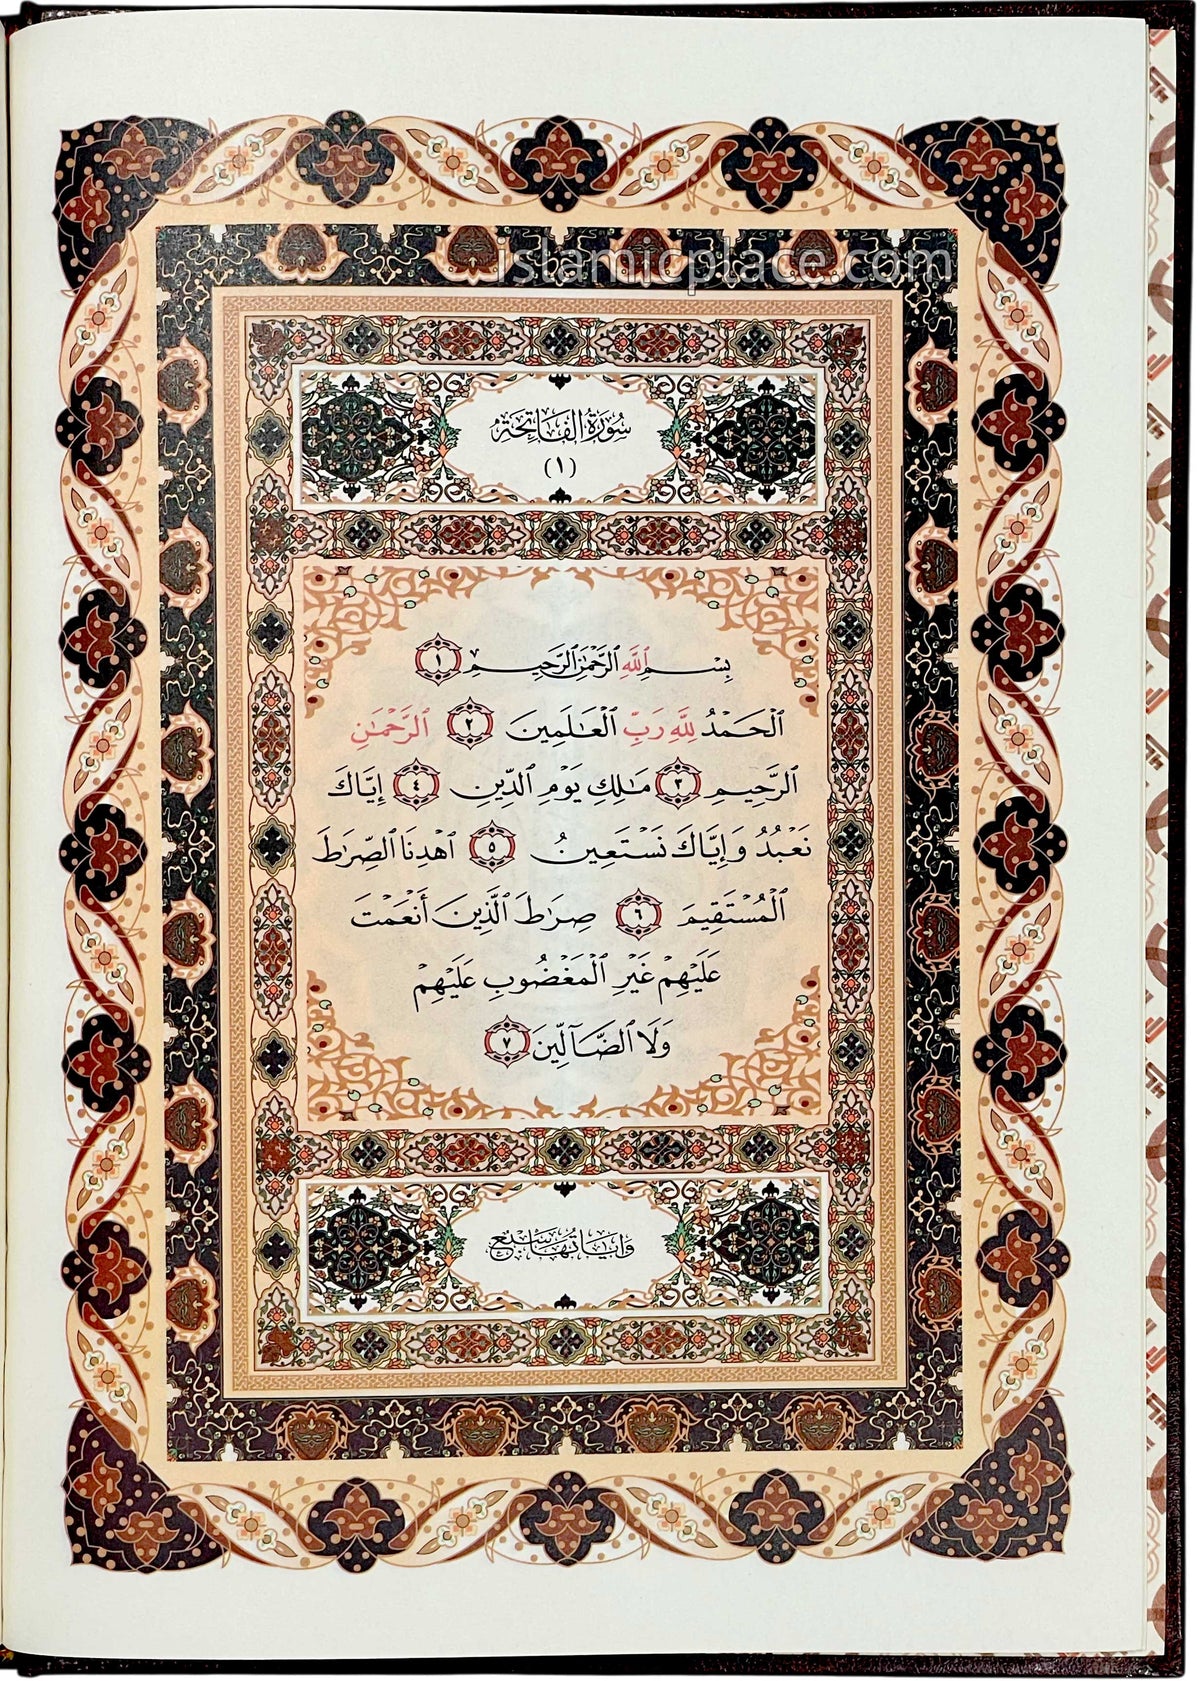 islamicplace.com
سُورَةُ الفَاتِحَة
(١)
بِسْمِ ٱللَّهِ ٱلرَّحْمَٰنِ ٱلرَّحِيمِ ١
ٱلْحَمْدُ لِلَّهِ رَبِّ ٱلْعَٰلَمِينَ ٢ ٱلرَّحْمَٰنِ
ٱلرَّحِيمِ ٣ مَٰلِكِ يَوْمِ ٱلدِّينِ ٤ إِيَّاكَ
نَعْبُدُ وَإِيَّاكَ نَسْتَعِينُ ٥ ٱهْدِنَا ٱلصِّرَٰطَ
ٱلْمُسْتَقِيمَ ٦ صِرَٰطَ ٱلَّذِينَ أَنْعَمْتَ
عَلَيْهِمْ غَيْرِ ٱلْمَغْضُوبِ عَلَيْهِمْ
وَلَا ٱلضَّآلِّينَ ٧
وَآيَاتُهَا سَبْعٌ